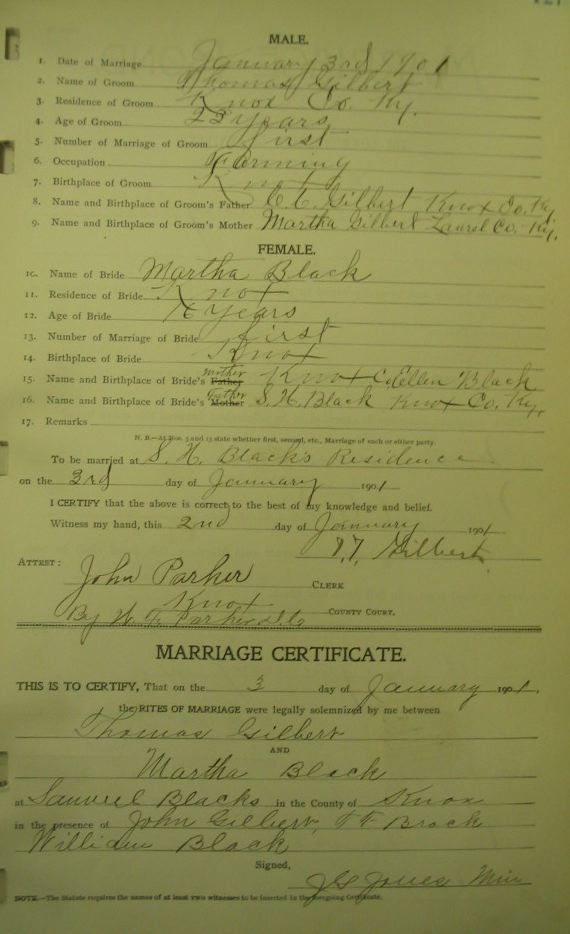 MALE.
1. Date of Marriage January 3rd 1901
2. Name of Groom Thomas Gilbert
3. Residence of Groom Knox Co. Ky.
4. Age of Groom 23 years
5. Number of Marriage of Groom first
6. Occupation Farming
7. Birthplace of Groom Knox
8. Name and Birthplace of Groom's Father C. C. Gilbert Knox Co. Ky.
9. Name and Birthplace of Groom's Mother Martha Gilbert Laurel Co. Ky.
FEMALE.
10. Name of Bride Martha Black
11. Residence of Bride Knox
12. Age of Bride 16 years
13. Number of Marriage of Bride first
14. Birthplace of Bride Knox
15. Name and Birthplace of Bride's Father mother Knox Ellen Black
16. Name and Birthplace of Bride's Mother Father S. H. Black Knox Co. Ky.
17. Remarks
N. B.—At Nos. 5 and 13 state whether first, second, etc., Marriage of each or either party.
To be married at S. H. Blacks Residence
on the 3rd day of January 1901
I CERTIFY that the above is correct to the best of my knowledge and belief.
Witness my hand, this 2nd day of January 1901
Gilbert
ATTEST: John Parker CLERK
Knox COUNTY COURT.
By W. Parker D.C
MARRIAGE CERTIFICATE.
THIS IS TO CERTIFY, That on the 3 day of January 1901.
the RITES OF MARRIAGE were legally solemnized by me between
Thomas Gilbert
AND
Martha Black
at Samuel Blacks in the County of Knox
in the presence of John Gilbert, Brock
William Black
Signed,
J G Jones Min
NOTE.—The Statute requires the names of at least two witnesses to be inserted in the foregoing Certificate.